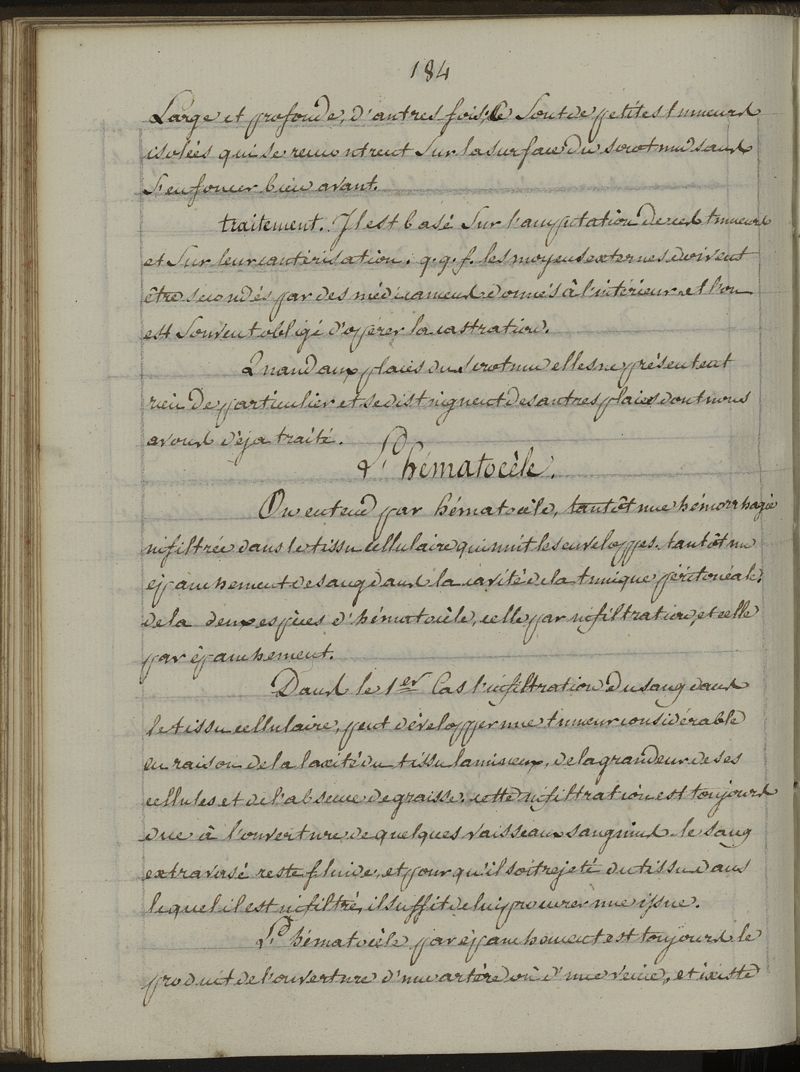 184
Large et profonde, d'autres fois, ce sont de petites tumeurs
isolées qui se rencontrent sur la surface du scrotum sans
s'enfoncer bien avant.
traitement. Il est basé sur l'amputation de ces tumeurs
et sur leur cautérisation. q.q.f. les moyens externes doivent
être secondés par des médicamens donnés à l'intérieur et l'on
est souvent obligé d'opérer la castration.
Quand aux plaies du scrotum elles ne présentent
rien de particulier et se distinguent des autres plaies dont nous
avons déja traité.
L'hématocèle.
On entend par hématocèle, tantôt une hémorrhagie
infiltrée dans le tissu cellulaire qui unit les enveloppes. tantôt un
épanchement de sang dans la cavité de la tunique péritonéale;
de la deux espèces d'hématocèle, celle par infiltration, et celle
par épanchement.
Dans le 1er Cas l'infiltration du sang dans
le tissu cellulaire, peut développer une tumeur considérable
en raison de la laxité du tissu lamineux, de la grandeur de ses
cellules et de l'absence de graisse. cette infiltration est toujours
due à l'ouverture de quelques vaisseaux sanguins. le sang
extravasé reste fluide, et pour qu'il soit rejeté du tissu dans
lequel il est infiltré, il suffit de lui procurer une issue.
L'hématocèle par épanchement est toujours le
produit de l'ouverture d'une artère où d'une veine, et existe